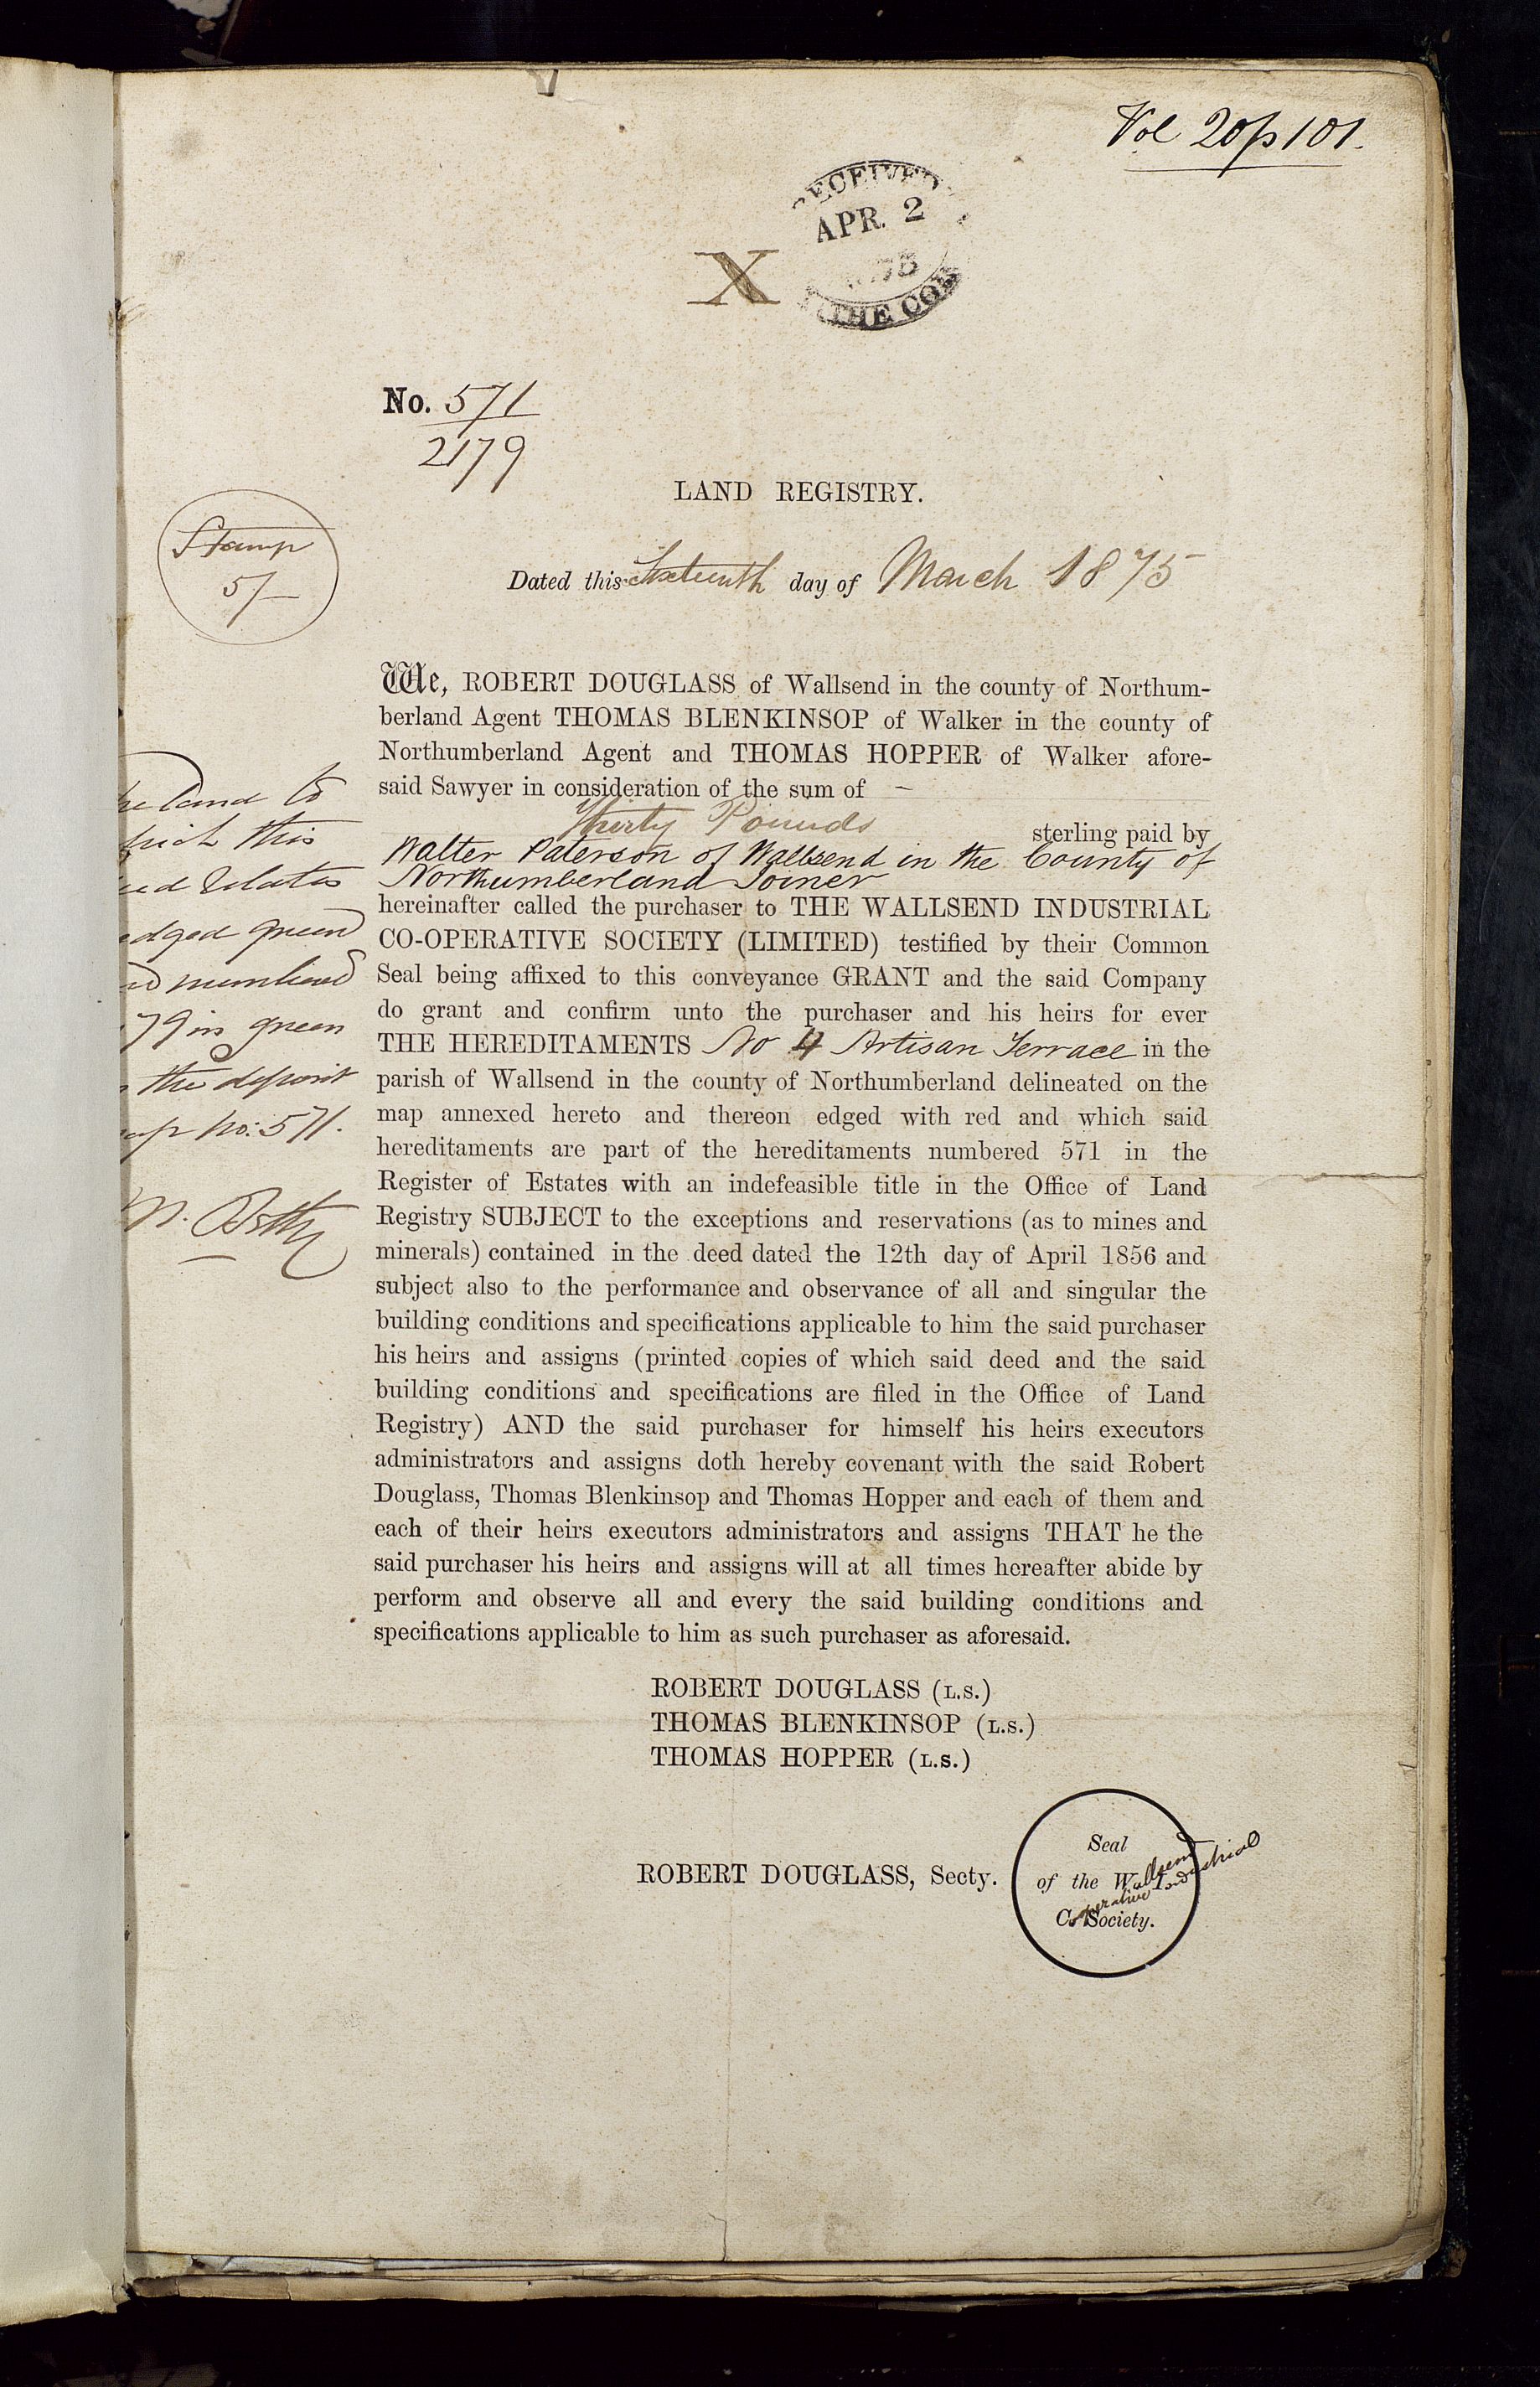 Vol 20 p 101.
RECEIVED
APR. 2
75
THE CO
X
No. 571
2179
LAND REGISTRY.
Stamp
5/-
Dated this Sixteenth day of March 1875
We, ROBERT DOUGLASS of Wallsend in the county of Northum-
berland Agent THOMAS BLENKINSOP of Walker in the county of
Northumberland Agent and THOMAS HOPPER of Walker afore-
said Sawyer in consideration of the sum of —
Thirty Pounds sterling paid by
Walter Paterson of Wallsend in the County of
Northumberland Joiner
hereinafter called the purchaser to THE WALLSEND INDUSTRIAL
CO-OPERATIVE SOCIETY (LIMITED) testified by their Common
Seal being affixed to this conveyance GRANT and the said Company
do grant and confirm unto the purchaser and his heirs for ever
THE HEREDITAMENTS No 4 Artisan Terrace in the
parish of Wallsend in the county of Northumberland delineated on the
map annexed hereto and thereon edged with red and which said
hereditaments are part of the hereditaments numbered 571 in the
Register of Estates with an indefeasible title in the Office of Land
Registry SUBJECT to the exceptions and reservations (as to mines and
minerals) contained in the deed dated the 12th day of April 1856 and
subject also to the performance and observance of all and singular the
building conditions and specifications applicable to him the said purchaser
his heirs and assigns (printed copies of which said deed and the said
building conditions and specifications are filed in the Office of Land
Registry) AND the said purchaser for himself his heirs executors
administrators and assigns doth hereby covenant with the said Robert
Douglass, Thomas Blenkinsop and Thomas Hopper and each of them and
each of their heirs executors administrators and assigns THAT he the
said purchaser his heirs and assigns will at all times hereafter abide by
perform and observe all and every the said building conditions and
specifications applicable to him as such purchaser as aforesaid.
he land to
hich this
eed relates
edged green
nd numbered
79 in green
the deposit
ap no: 571.
ROBERT DOUGLASS (L.S.)
THOMAS BLENKINSOP (L.S.)
THOMAS HOPPER (L.S.)
ROBERT DOUGLASS, Secty.
Seal
of the Wallsend Industrial
Cooperative Society.